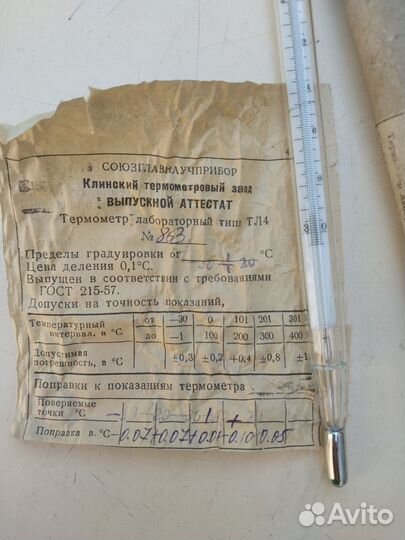 СОЮЗГЛАВНАУЧПРИБОР
Клинский термометровый завод
ВЫПУСКНОЙ АТТЕСТАТ
Термометр лабораторный типа ТЛ4
№ 863
Пределы градуировки от °С
Цена деления 0,1°С.
Выпущен в соответствии с требованиями
ГОСТ 215-57.
Допуски на точность показаний,
Температурный от —30 0 101 201 301
интервал, в °С до —1 100 200 300 400
Допустимая
погрешность, в °С ±0,3 ±0,2 ±0,4 ±0,8 ±1
Поправки к показаниям термометра
Поверяемые
точки °С
Поправка в °С
Avito